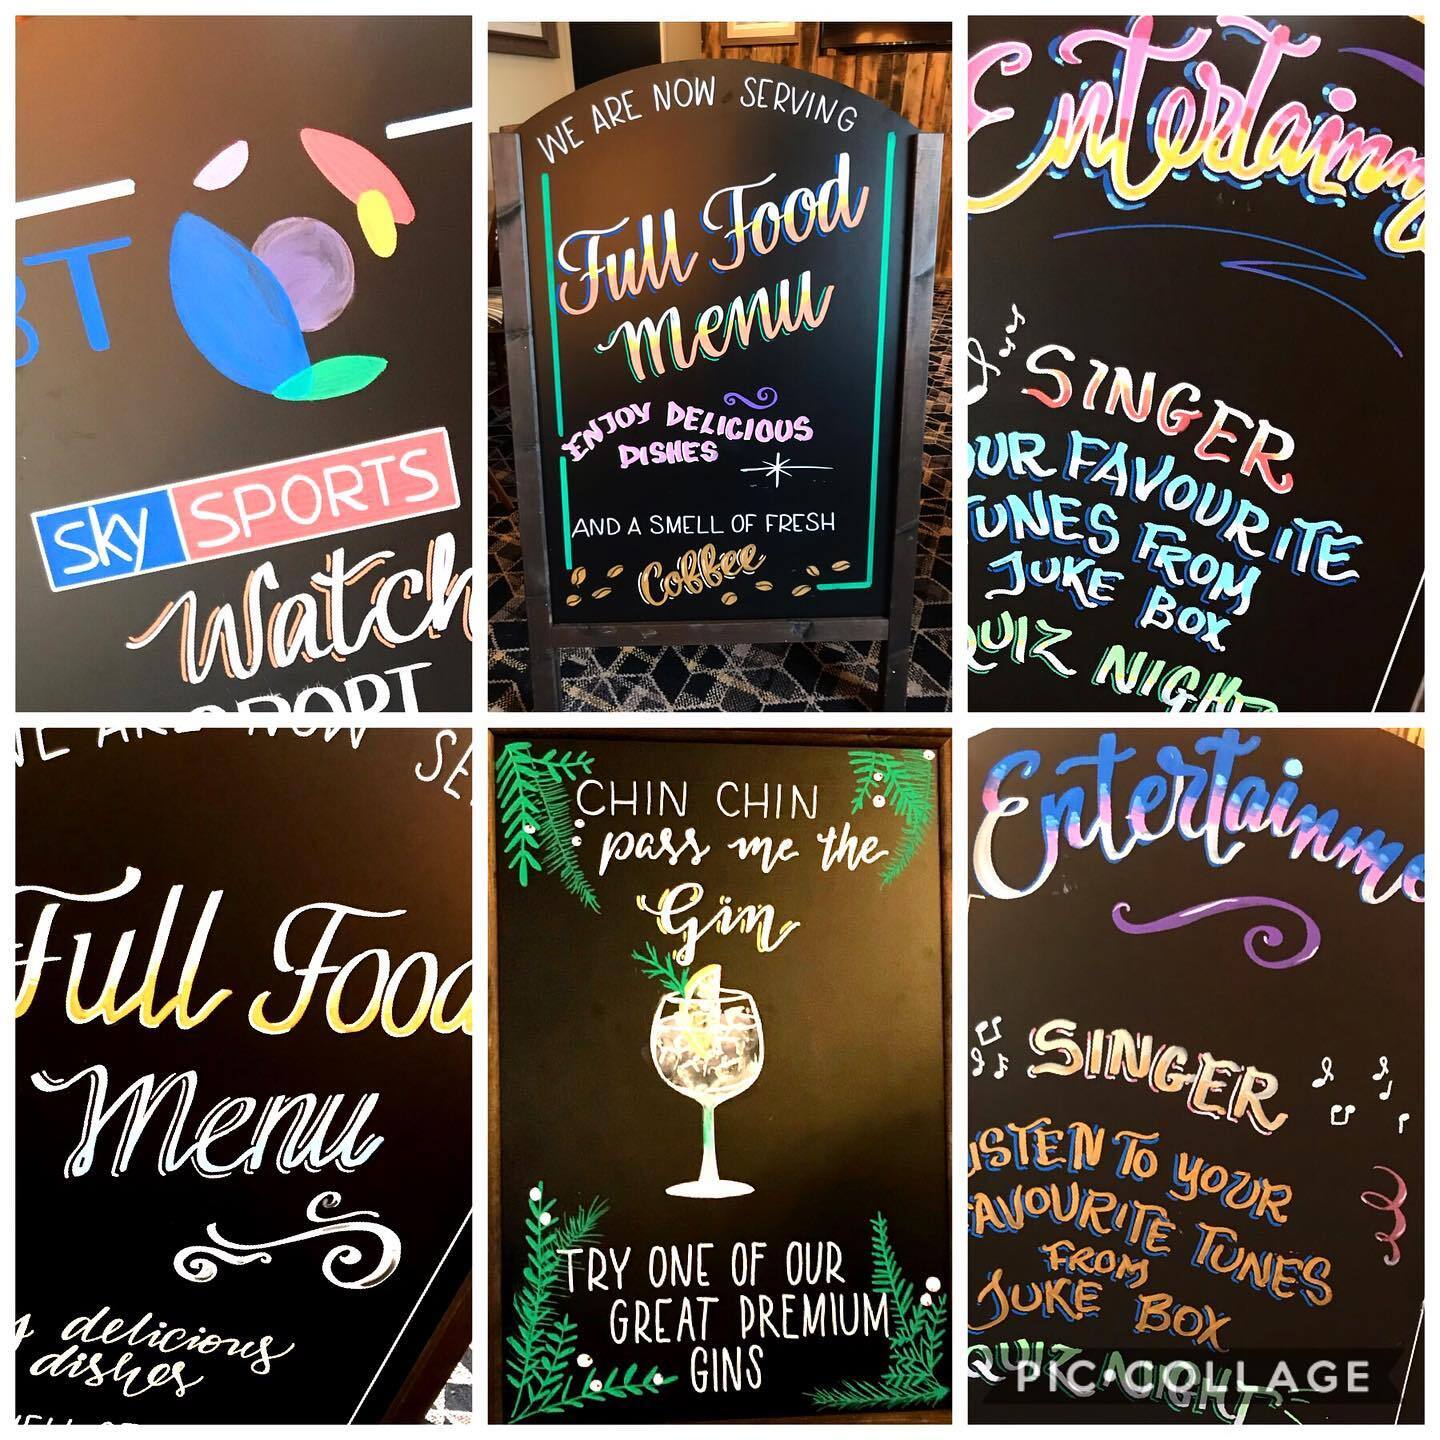 BT
sky SPORTS
Watch
SPORT
WE ARE NOW SERVING
Full Food
Menu
ENJOY DELICIOUS
DISHES
AND A SMELL OF FRESH
Coffee
Entertainm
SINGER
OUR FAVOURITE
TUNES FROM
JUKE BOX
QUIZ NIGHT
WE ARE NOW SE
Full Food
Menu
y delicious
dishes
CHIN CHIN
pass me the
Gin
TRY ONE OF OUR
GREAT PREMIUM
GINS
Entertainme
SINGER
LISTEN TO YOUR
FAVOURITE TUNES
FROM
JUKE BOX
QUIZ NIGHT
PIC•COLLAGE